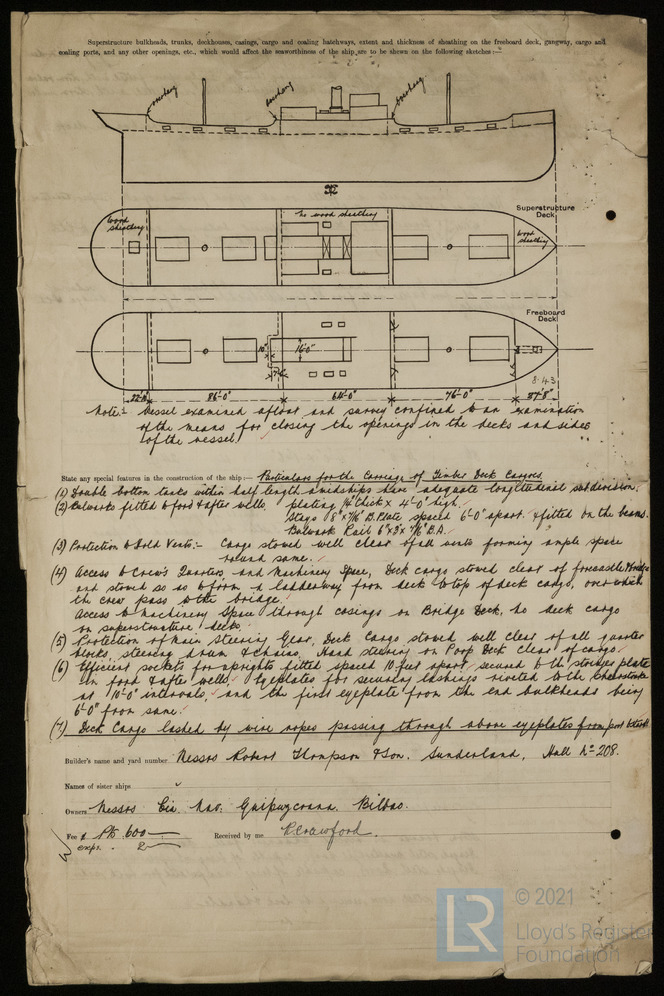 Superstructure bulkheads, trunks, deckhouses, casings, cargo and coaling hatchways, extent and thickness of sheathing on the freeboard deck, gangway, cargo and
coaling ports, and any other openings, etc., which would affect the seaworthiness of the ship are to be shewn on the following sketches :—
Superstructure
Deck
wood
sheathing
no wood sheathing
wood
sheathing
Freeboard
Deck
10"
16'-0"
8·43
86'-0"
64'-0"
76'-0"
27'-8"
Note:- Vessel examined afloat and survey confined to an examination
of the means for closing the openings in the decks and sides
of the vessel.
State any special features in the construction of the ship :— Particulars for the Carriage of Timber Deck Cargoes.
(1) Double bottom tanks within half length amidships have adequate longitudinal subdivision.
(2) Bulwarks fitted to ford & after wells, plating 1/4" thick x 4'-0" high.
Stays 8" x 7/16" B. Plate spaced 6'-0" apart & fitted on the beams.
Bulwark Rail 6" x 3" x 7/16" B.A.
(3) Protection to Hold Vents:- Cargo stowed well clear of all vents forming ample space
round same.
(4) Access to Crew's Quarters and Machinery Space, Deck cargo stowed clear of forecastle
and stowed so as to form a ladderway from deck to top of deck cargo, over which
the crew pass to the bridge.
Access to Machinery Space through casings on Bridge Deck, no deck cargo
on superstructure decks.
(5) Protection of Main Steering Gear, Deck Cargo stowed well clear of all quarter
blocks, steering drum & chains. Hand steering on Poop Deck clear of cargo.
(6) Efficient sockets for uprights fitted spaced 10 feet apart, secured to the stringer plate
in ford & after wells. Eyeplates for securing lashings riveted to the sheerstrake
at 10'-0" intervals, and the first eyeplate from the end bulkheads being
6'-0" from same.
(7) Deck Cargo lashed by wire ropes passing through above eyeplates from port to
Builder's name and yard number Messrs Robert Thompson & Son. Sunderland. Hull No 208.
Names of sister ships
Owners Messrs Cia. Nav. Guipuzcoana. Bilbao.
Fee £ Pts 600
exps. 2
Received by me R Crawford.
LR
© 2021
Lloyd's Register
Foundation